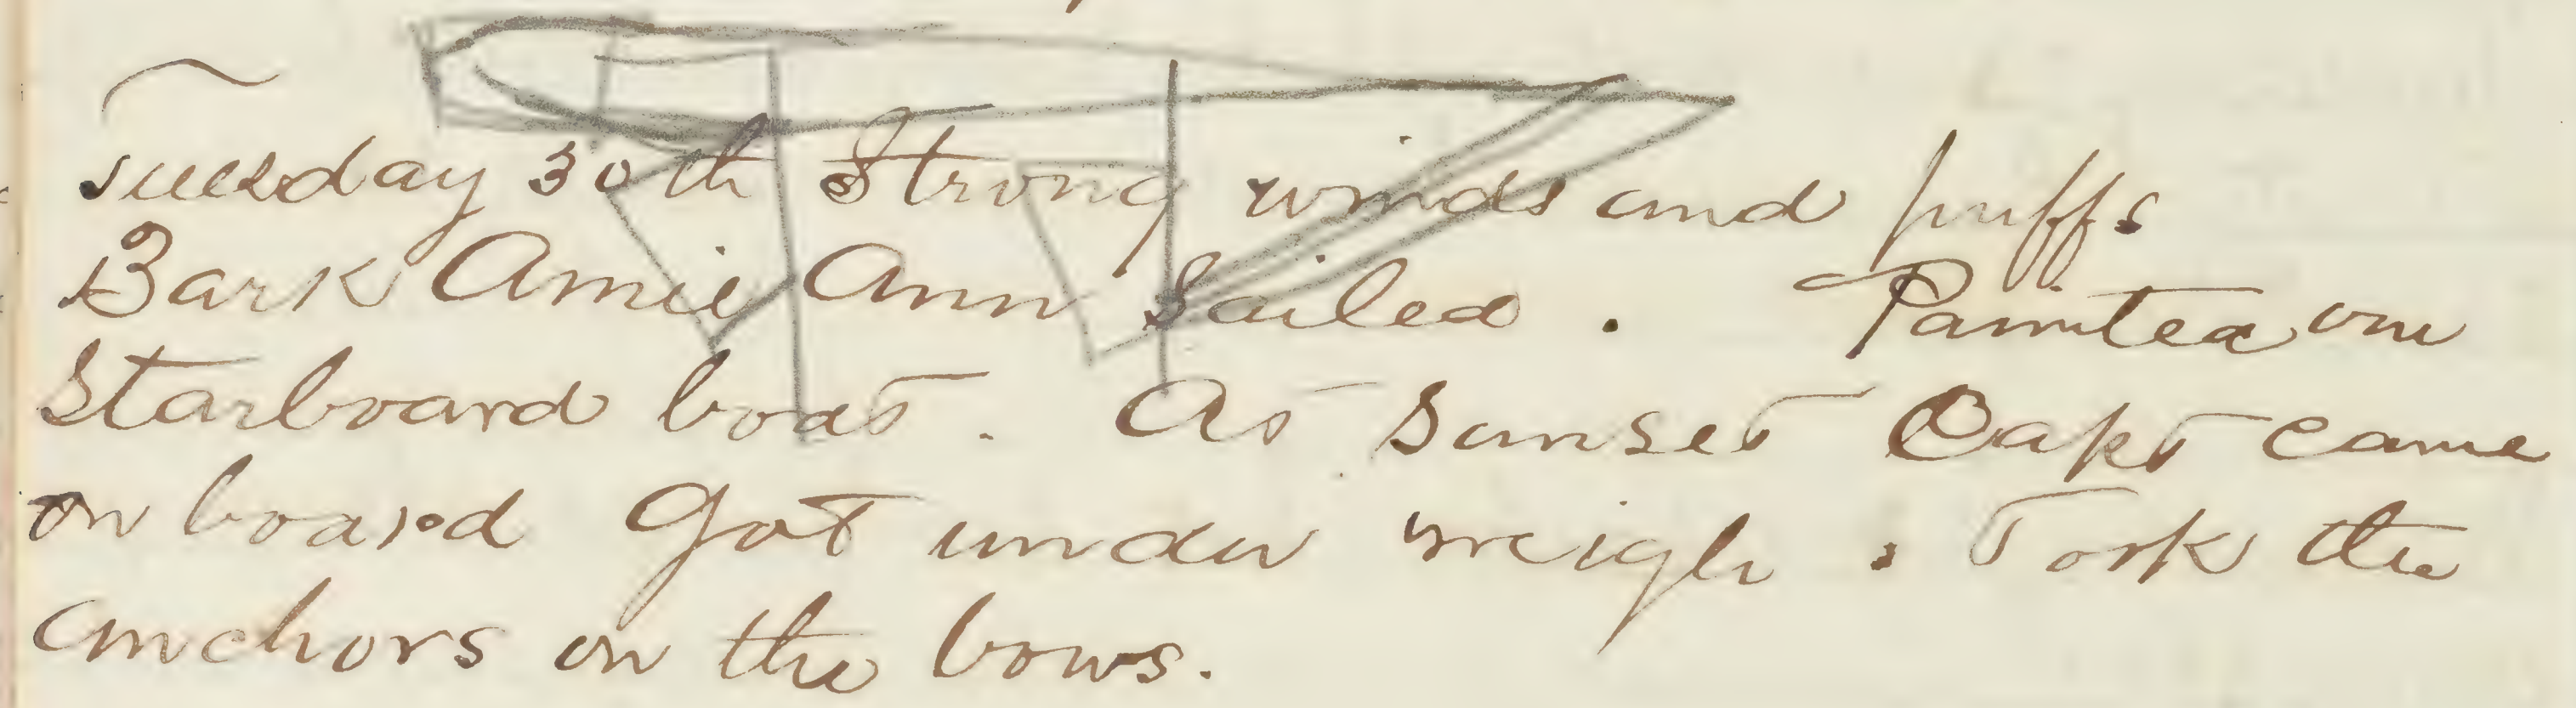 Tuesday 30th Strong winds and puffs
Bark Amie Ann Sailed. Painted on
Starboard boat. At Sunset Capt came
on board Got under weigh. Took the
anchors on the bows.